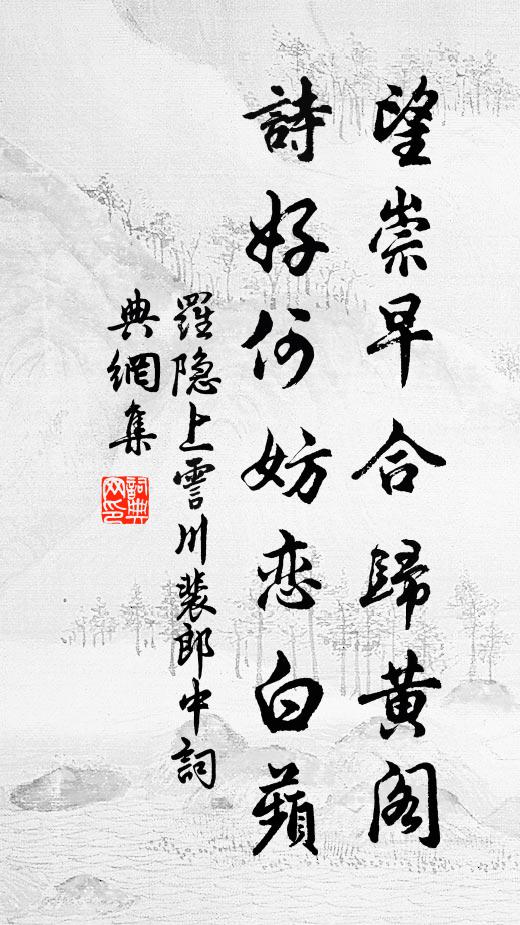 望崇早合歸黃阁
詩好何妨恋白蘋
羅隐上霅川裴郎中詞
典網集
詞典
网印